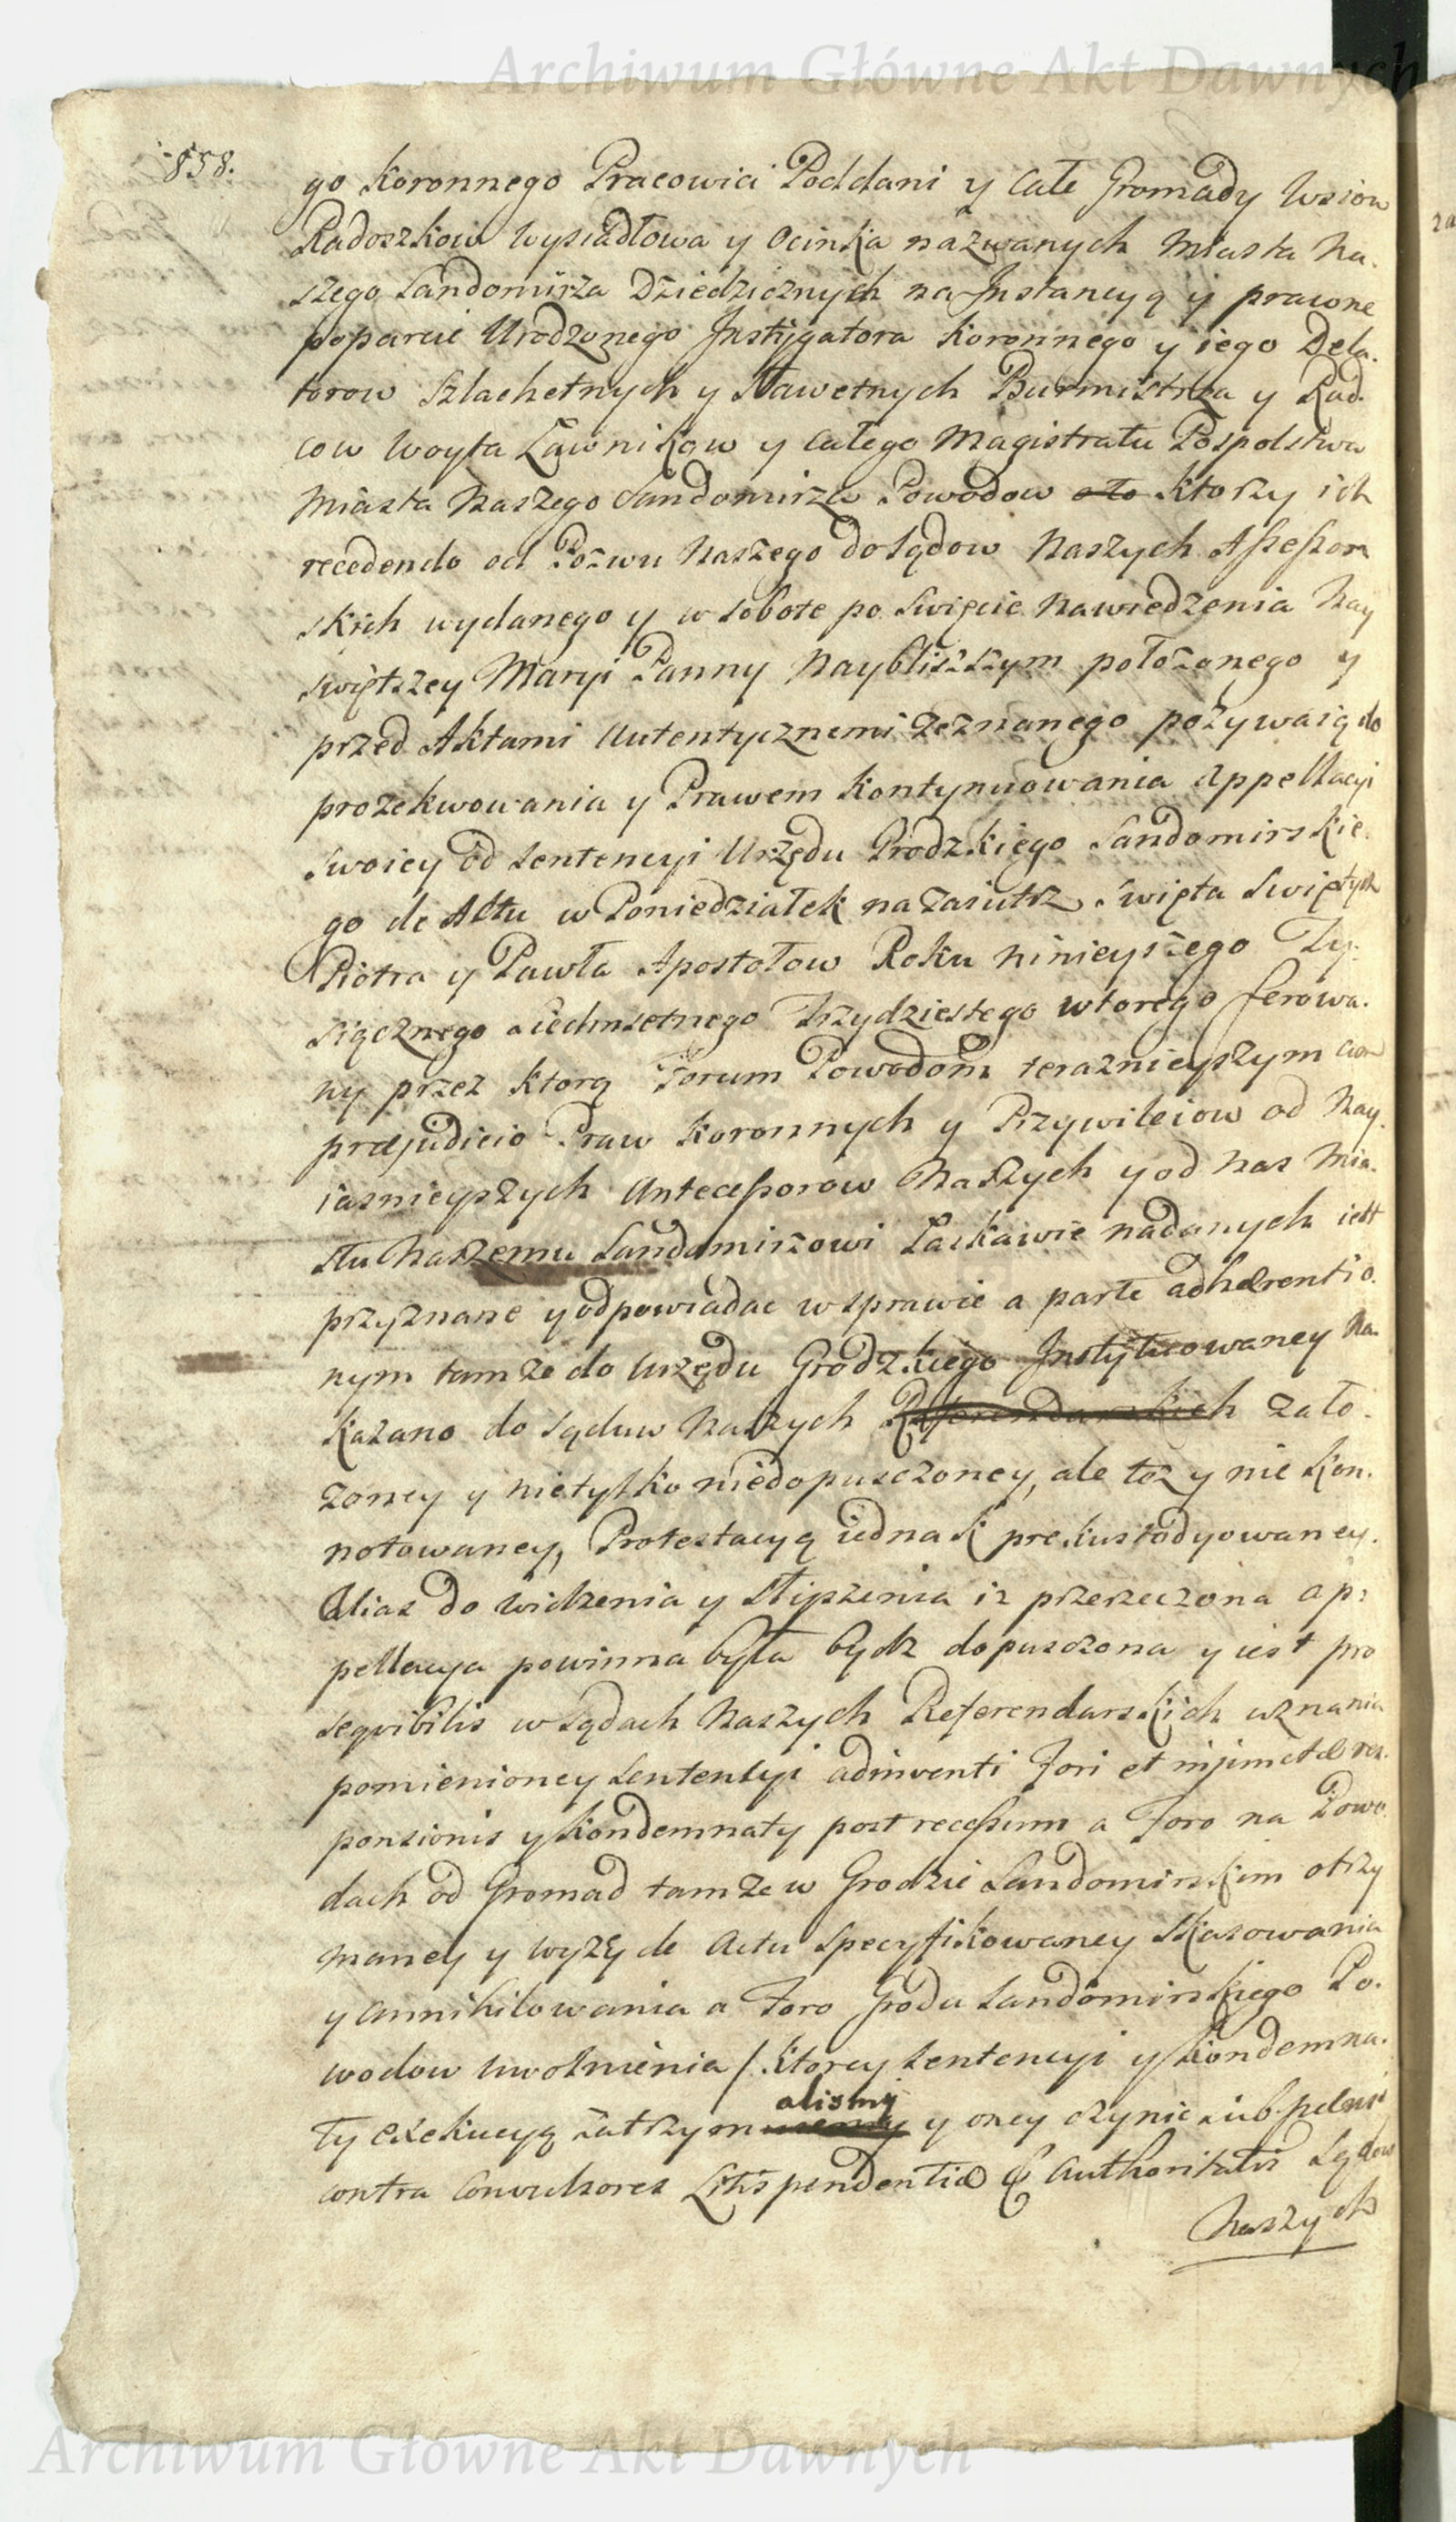 Archiwum Główne Akt Dawnych
858.
go Koronnego Pracowici Poddani y Całe Gromady Wsiow
Radoszkow Wysiadłowa y Ocinka nazwanych Miasta Na-
szego Sandomirza Dziedzicznych na Instancyą y prawne
poparcie Urodzonego Instygatora Koronnego y iego Dela-
torow Szlachetnych y Sławetnych Burmistrza y Rad-
cow Woyta Ławnikow y całego Magistratu Pospolstwa
Miasta Naszego Sandomirza Powodow oto Ktorzy ich
recedendo od Pozwu Naszego do Sądow Naszych Assessor
skich wydanego y w Sobote po Swięcie Nawiedzenia Nay
swiętszey Maryi Panny Naybliszszym położonego y
przed Aktami Autentycznemi zeznanego pozywaią do
prozekwowania y Prawem Kontynuowania Appellacyi
swoiey od Sentencyi Urzędu Grodzkiego Sandomirskie-
go de Actu w Poniedziałek nazaiutrz Swięta Swiętych
Piotra y Pawła Apostołow Roku ninieyszego Ty-
siącznego Siedmsetnego Trzydziestego wtorego ferowa-
ny przez ktorą Forum Powodom teraznieyszym cum
præjudicio Praw Koronnych y Przywileiow od Nay-
iasnieyszych Antecessorow Naszych y od Nas Mia-
stu Naszemu Sandomirzowi Łaskawie nadanych iest
przyznane y odpowiadac w sprawie a parte adhærentio-
nym tamze do Urzędu Grodzkiego Instytuowaney Na-
kazano do Sąduw Naszych Referendarskich zało-
żoney y nietylko niedopuszczoney, ale toż y nie kon-
notowaney, Protestacyą iednak prekustodyowaney.
Alias do widzenia y słiszenia iz przerzeczona ap-
pellacya powinna była bydz dopuszczona y iest pro
seqvibilis w Sądach Naszych Referendarskich uznania
pomienioney Sentencyi adinventi Fori et injunctæ res-
ponsionis y Kondemnaty post recessum a Foro na Powo-
dach od Gromad tamze w Grodzie Sandomirskim otrzy
maney y wyzy de Actu specyfikowaney Skasowania
y annihilowania a Foro Grodu Sandomirskiego Po-
wodow uwolnienia / Ktorey Sentencyi y Kondemna-
alismy
ty exekucyą zatrzymuiemy y oney czynic sub poenis
contra Convulsores Litispendentiæ & Authoritatis Sądow
Naszych
Archiwum Główne Akt Dawnych